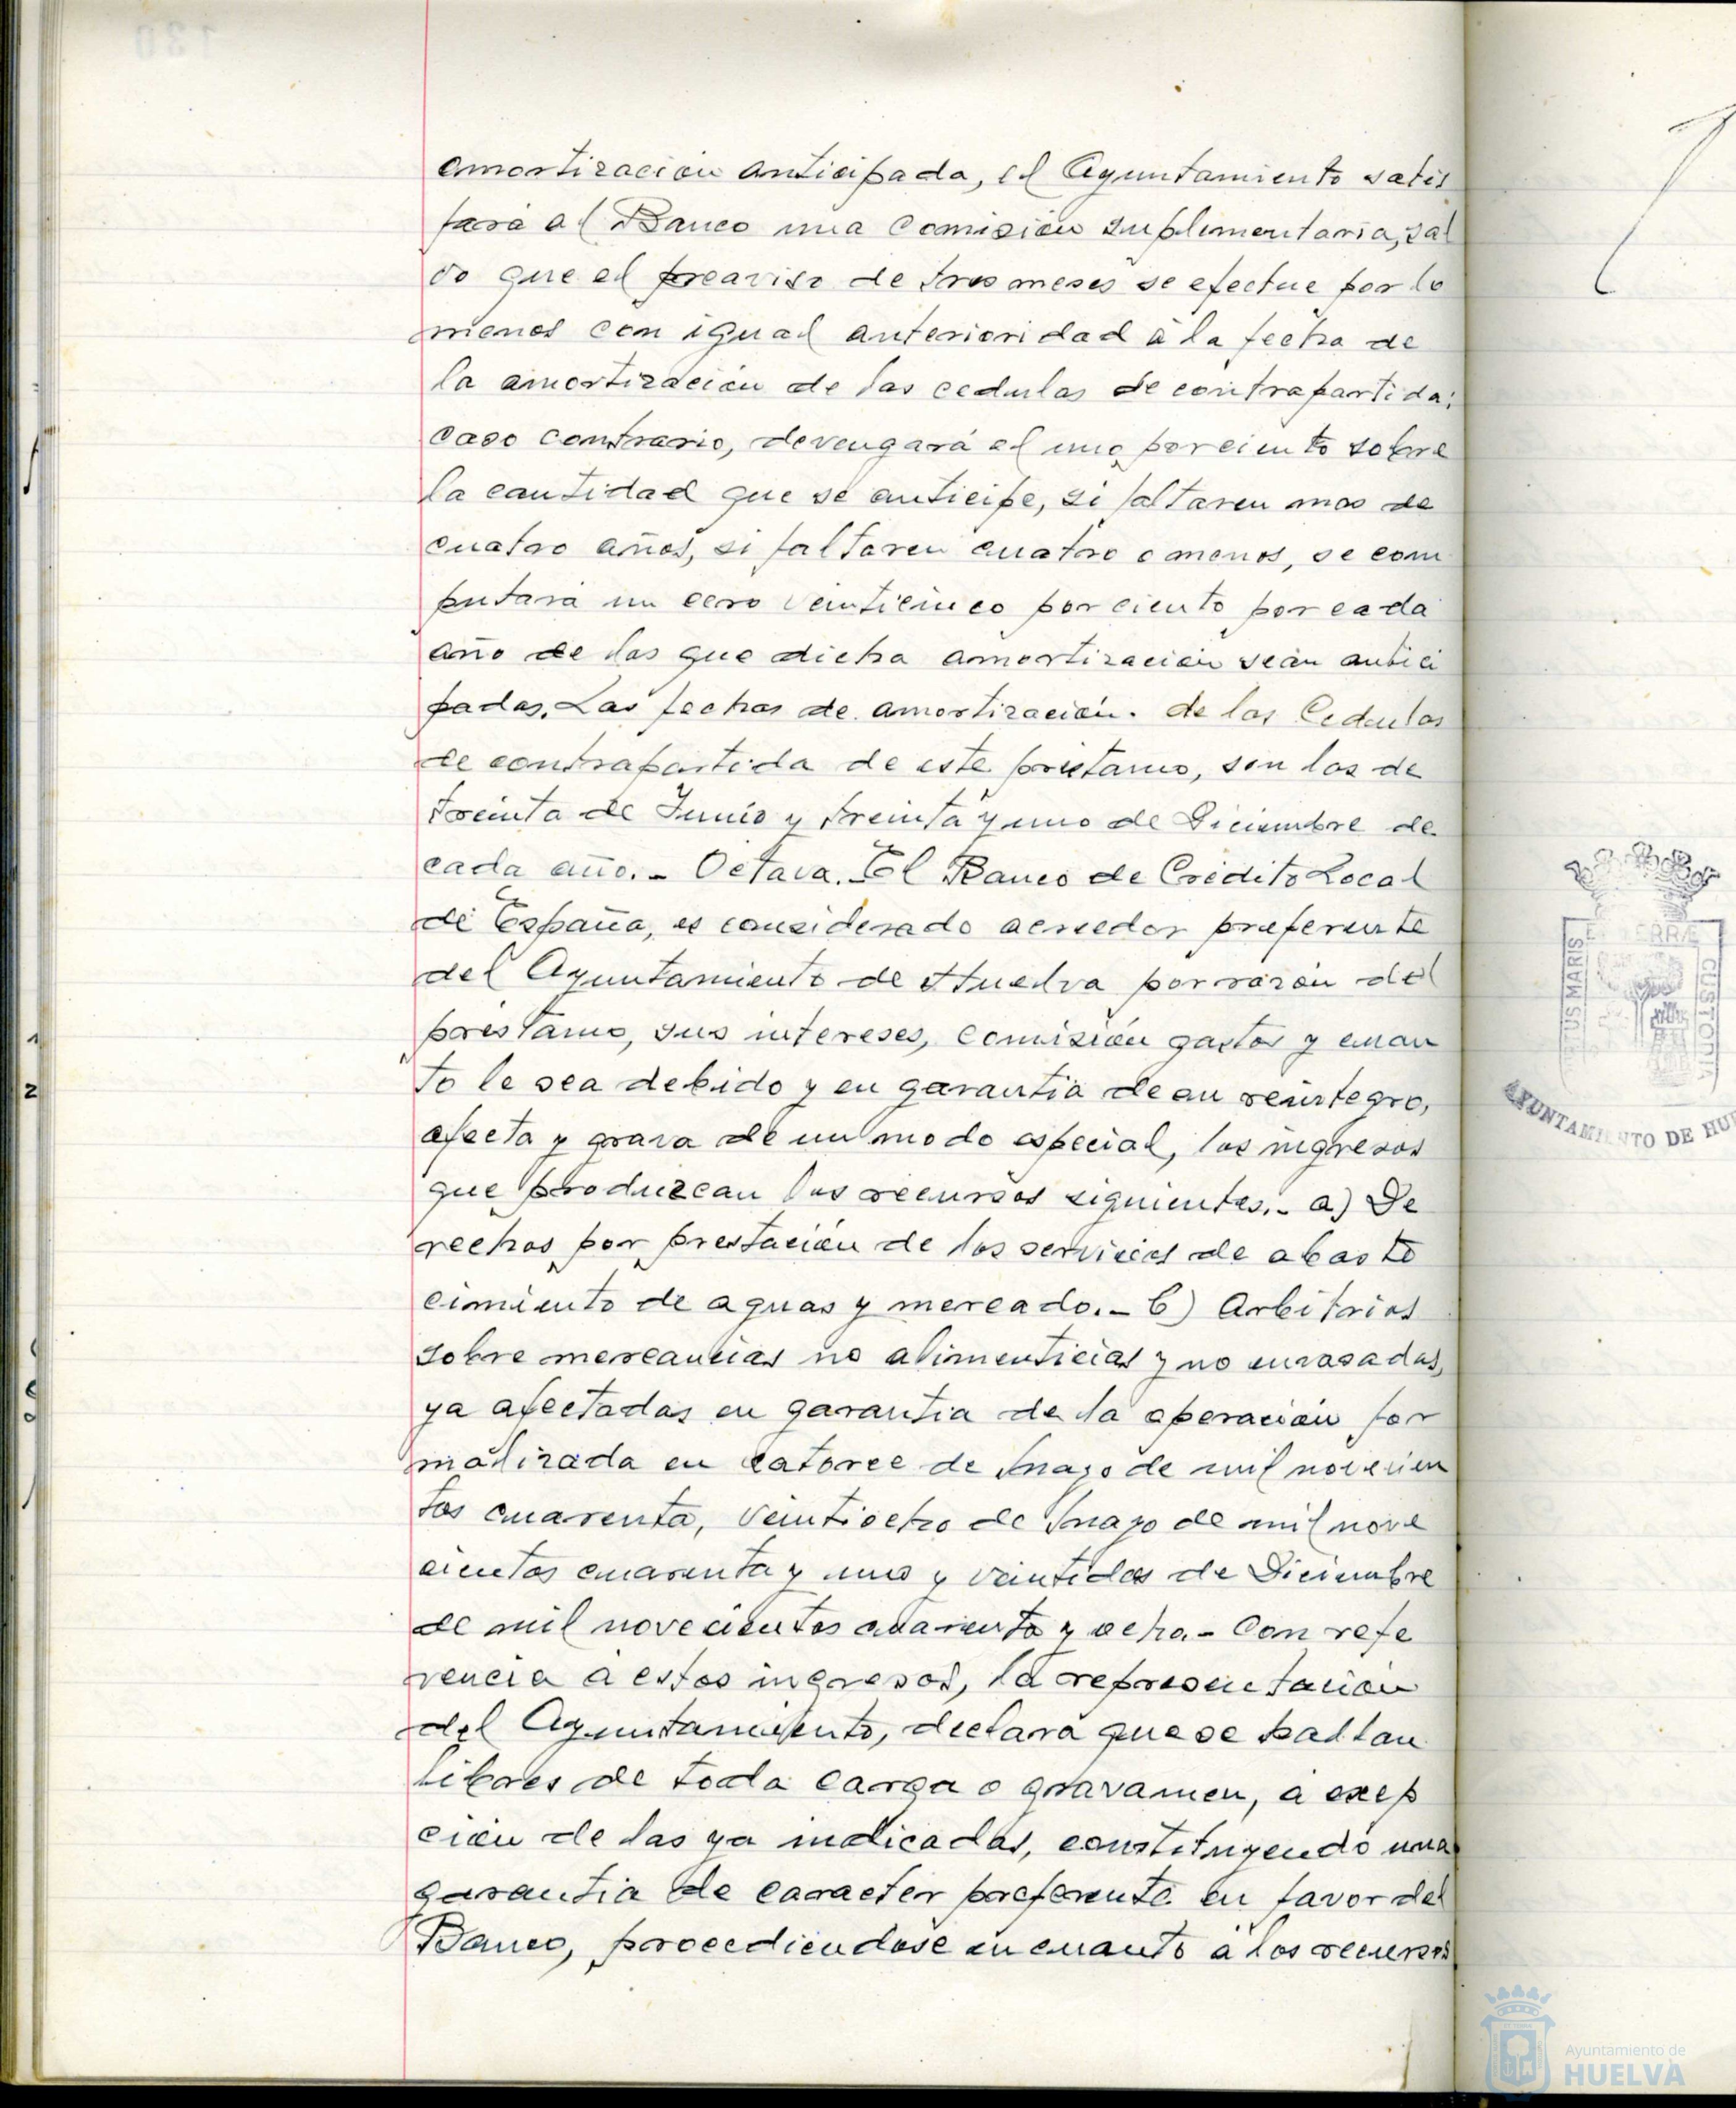 amortización anticipada, el Ayuntamiento satis
fara al Banco una Comisión suplementaria, sal
vo que el preaviso de tres meses se efectue por lo
menos con igual anterioridad a la fecha de
la amortización de las cedulas de contrapartida;
caso contrario, devengará el uno por ciento sobre
la cantidad que se anticipe, si faltaren mas de
cuatro años, si faltaren cuatro o menos, se com
putara un cero veinticinco por ciento por cada
año de los que dicha amortización sean antici
padas. Las fechas de amortización. de las Cedulas
de contrapartida de este prestamo, son las de
treinta de Junio y treinta y uno de Diciembre de
cada año. - Octava. El Banco de Crédito Local
de España, es considerado acreedor preferente
del Ayuntamiento de Huelva por razón del
prestamo, sus intereses, comisión gastos y cuan
to le sea debido y en garantia de su reintegro,
afecta y grava de un modo especial, los ingresos
que produzcan los recursos siguientes. - a) De
rechos por prestación de los servicios de abaste
cimiento de aguas y mercado. - b) Arbitrios
sobre mercancias no alimenticias y no envasadas,
ya afectadas en garantia de la operación for
malizada en catorce de Mayo de mil novecien
tos cuarenta, veintiocho de Mayo de mil nove
cientos cuarenta y uno y veintidos de Diciembre
de mil novecientos cuarenta y ocho. - Con refe
rencia a estos ingresos, la representación
del Ayuntamiento, declara que se hallan
libres de toda carga o gravamen, a exep
ción de las ya indicadas, constituyendo una
garantia de caracter preferente en favor del
Banco, procediendose en cuanto a los recursos
AYUNTAMIENTO DE HU
Ayuntamiento de
HUELVA